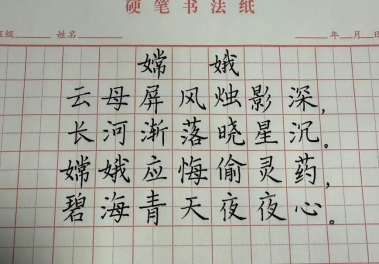 硬笔书法纸
班级 姓名 年 月 日
嫦娥
云母屏风烛影深，
长河渐落晓星沉。
嫦娥应悔偷灵药，
碧海青天夜夜心。